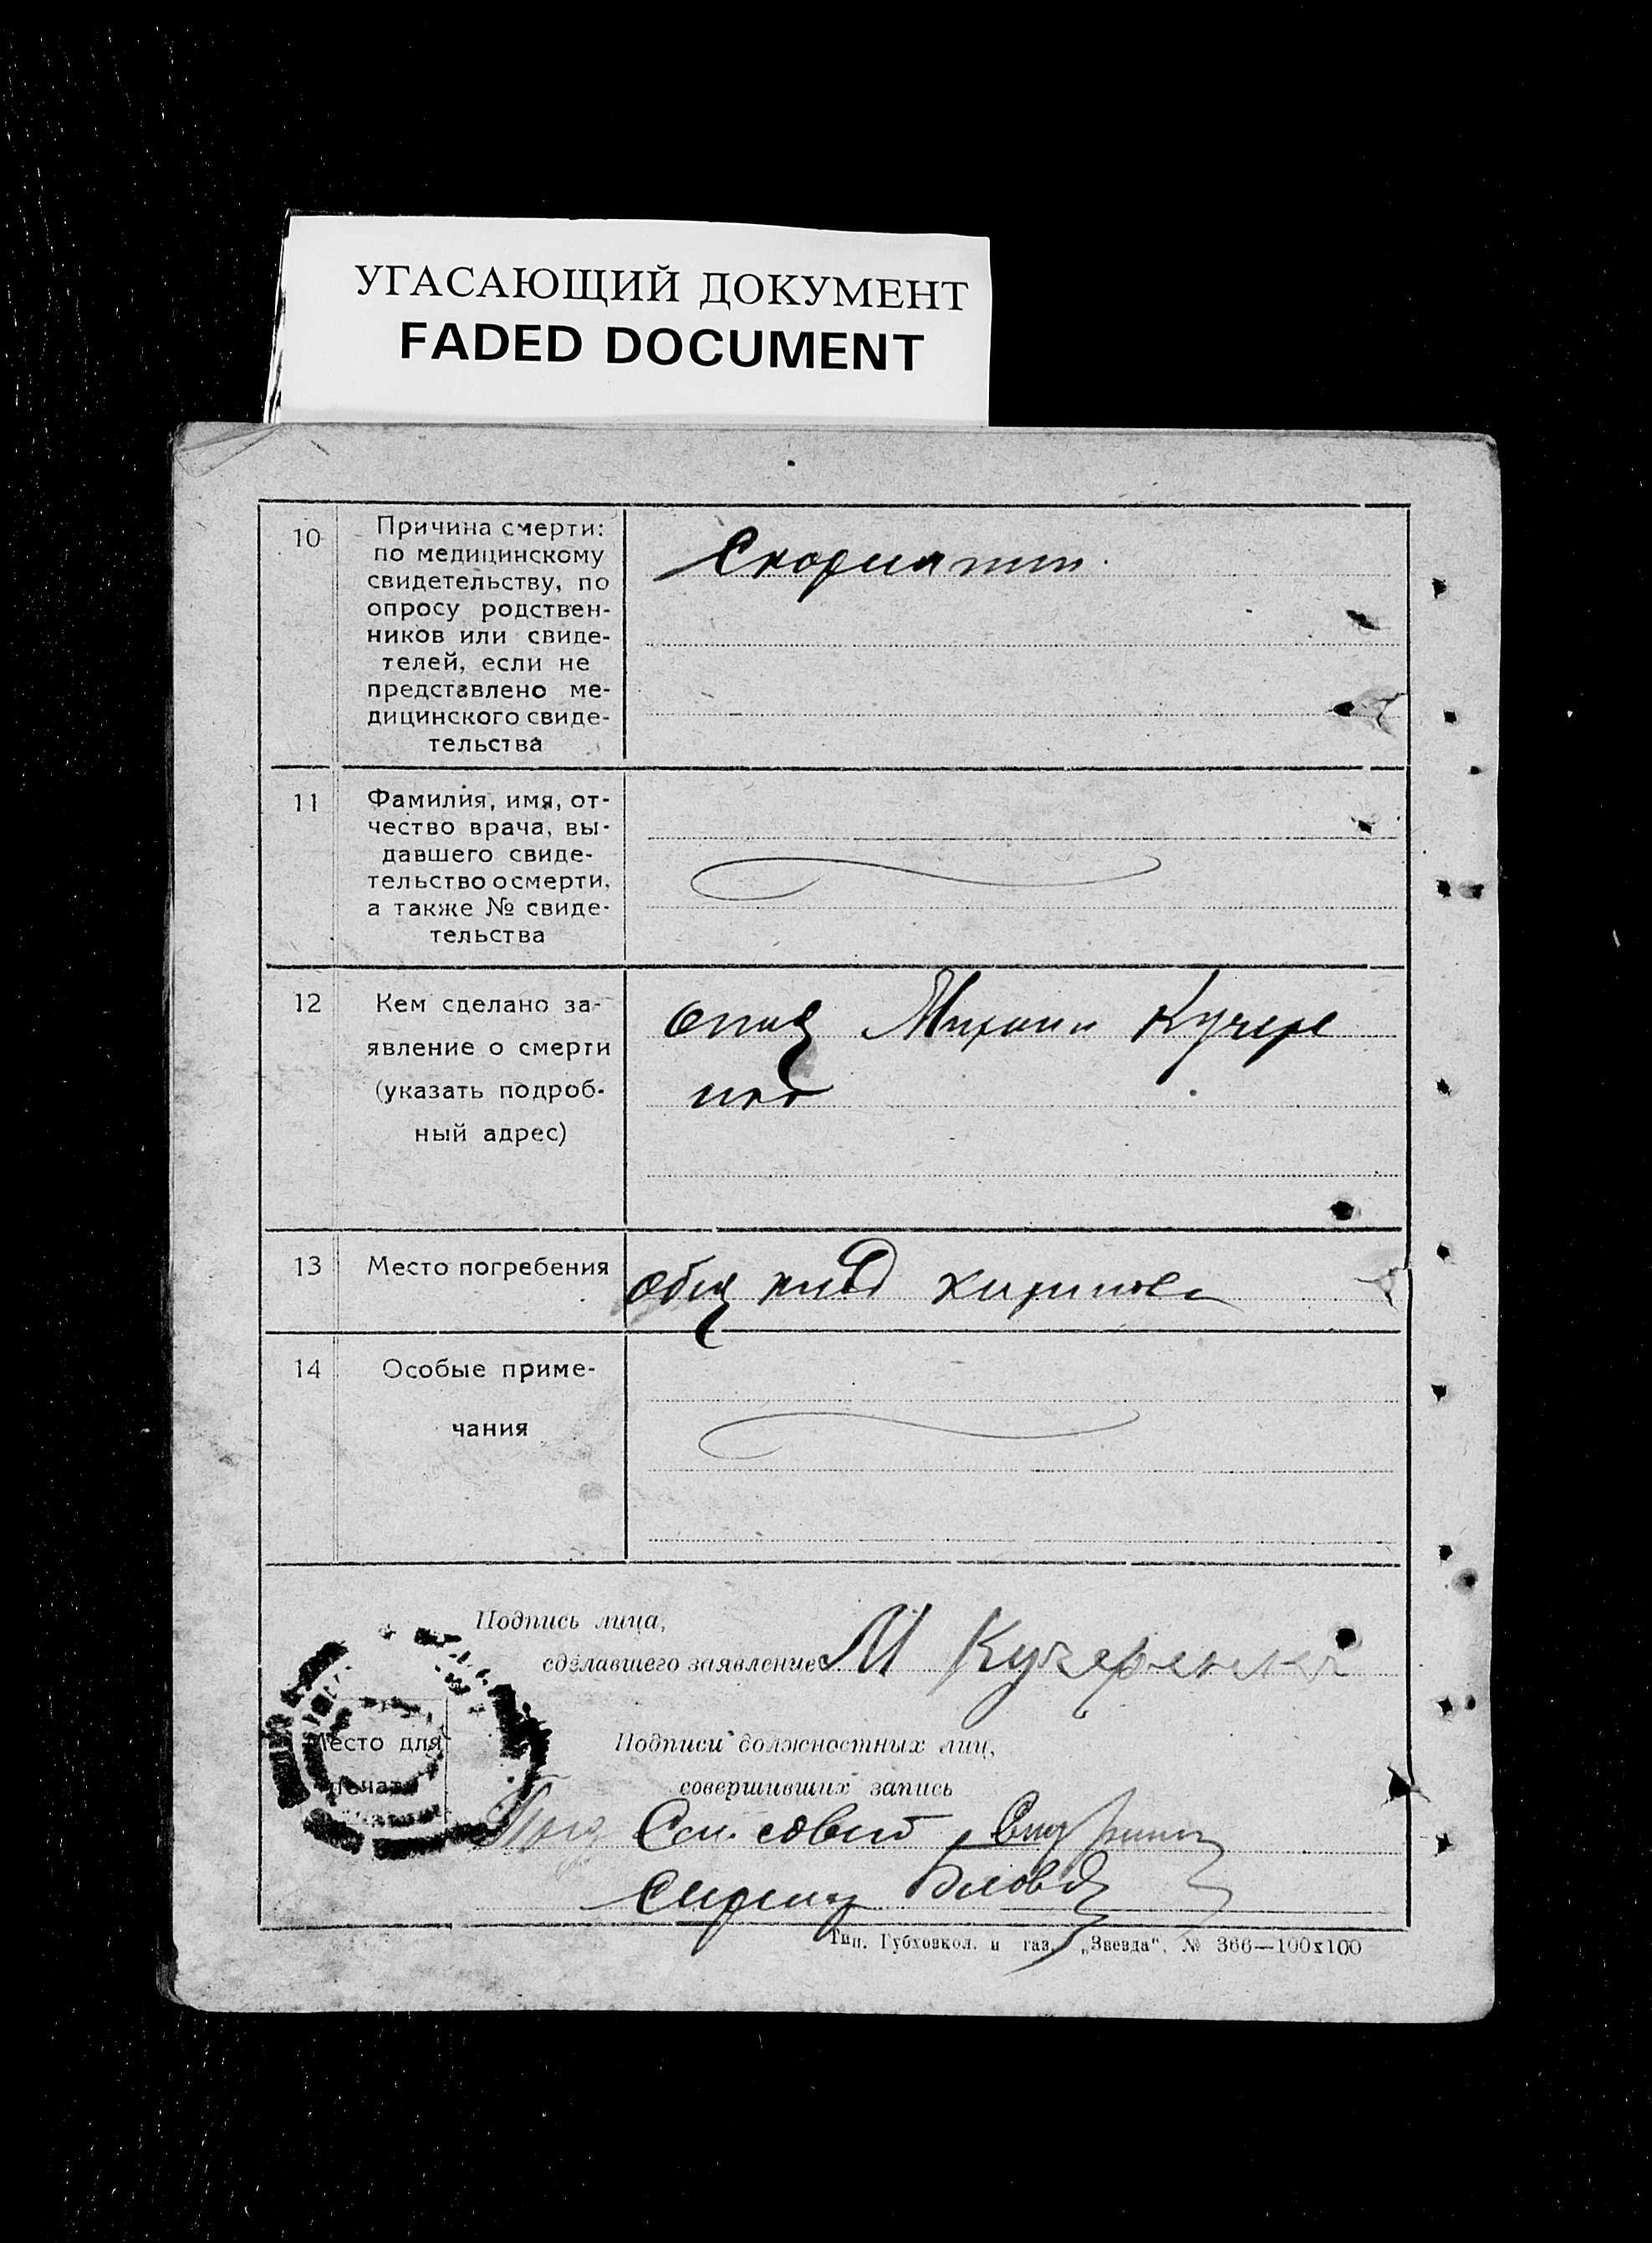 УГАСАЮЩИЙ ДОКУМЕНТ
FADED DOCUMENT
10
Причина смерти:
по медицинскому
свидетельству, по
опросу родствен-
ников или свиде-
телей, если не
представлено ме-
дицинского свиде-
тельства
11
Фамилия, имя, от-
чество врача, вы-
давшего свиде-
тельство о смерти,
а также № свиде-
тельства
12
Кем сделано за-
явление о смерти
(указать подроб-
ный адрес)
отец Михаил Кучере
нко
13
Место погребения
14
Особые приме-
чания
Подпись лица,
сделавшего заявление М Кучеренко
Место для
печати
Подписи должностных лиц,
совершивших запись
Сел. совет
Тип. Губховкол. и газ. „Звезда“, № 366—100х100